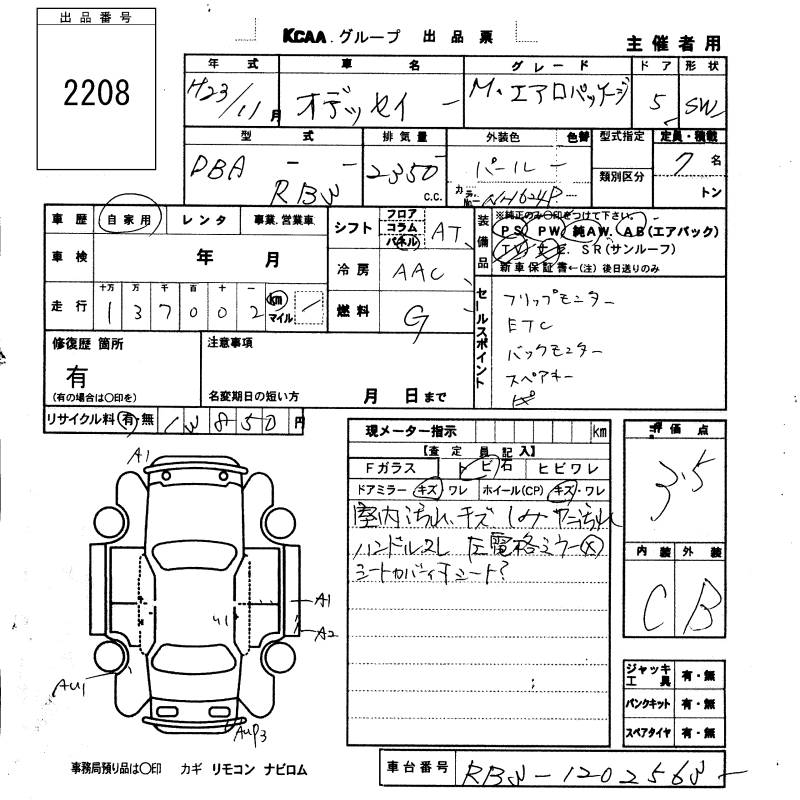 出品番号
2208
KCAA.グループ 出品票
主催者用
年式 車名 グレード ドア 形状
H23/11月 オデッセイ M・エアロパッケージ 5 SW
型式 排気量 外装色 色替 型式指定 定員・積載
DBA - RB3 2350 c.c. パール 類別区分 7名
カラーNo. NH624P トン
車歴 自家用 レンタ 事業.営業車
シフト フロア コラム パネル AT
装備品 ※純正のみ○印をつけて下さい。
PS PW. 純AW. AB(エアバック)
TV SR(サンルーフ)
新車保証書←(注)後日送りのみ
車検 年 月
冷房 AAC
走行 十万 万 千 百 十 一
137002 km マイル
燃料 G
セールスポイント
フリップモニター
ETC
バックモニター
スペアキー
修復歴 箇所
有
(有の場合は○印を)
注意事項
名変期日の短い方 月 日まで
リサイクル料 有・無 1 8 5 0 円
現メーター指示 km
【査定員記入】
Fガラス トビ石 ヒビワレ
ドアミラー キズ・ワレ ホイール(CP) キズ・ワレ
室内汚れ、キズ シミ ヤニ汚れ
ハンドルスレ 左電格ミラー
シートカバー シート?
評価点
3.5
内装 外装
C B
A1
A1
A2
U1
AU1
AUP3
ジャッキ工具 有・無
パンクキット 有・無
スペアタイヤ 有・無
事務局預り品は○印 カギ リモコン ナビロム
車台番号 RB3-1202563